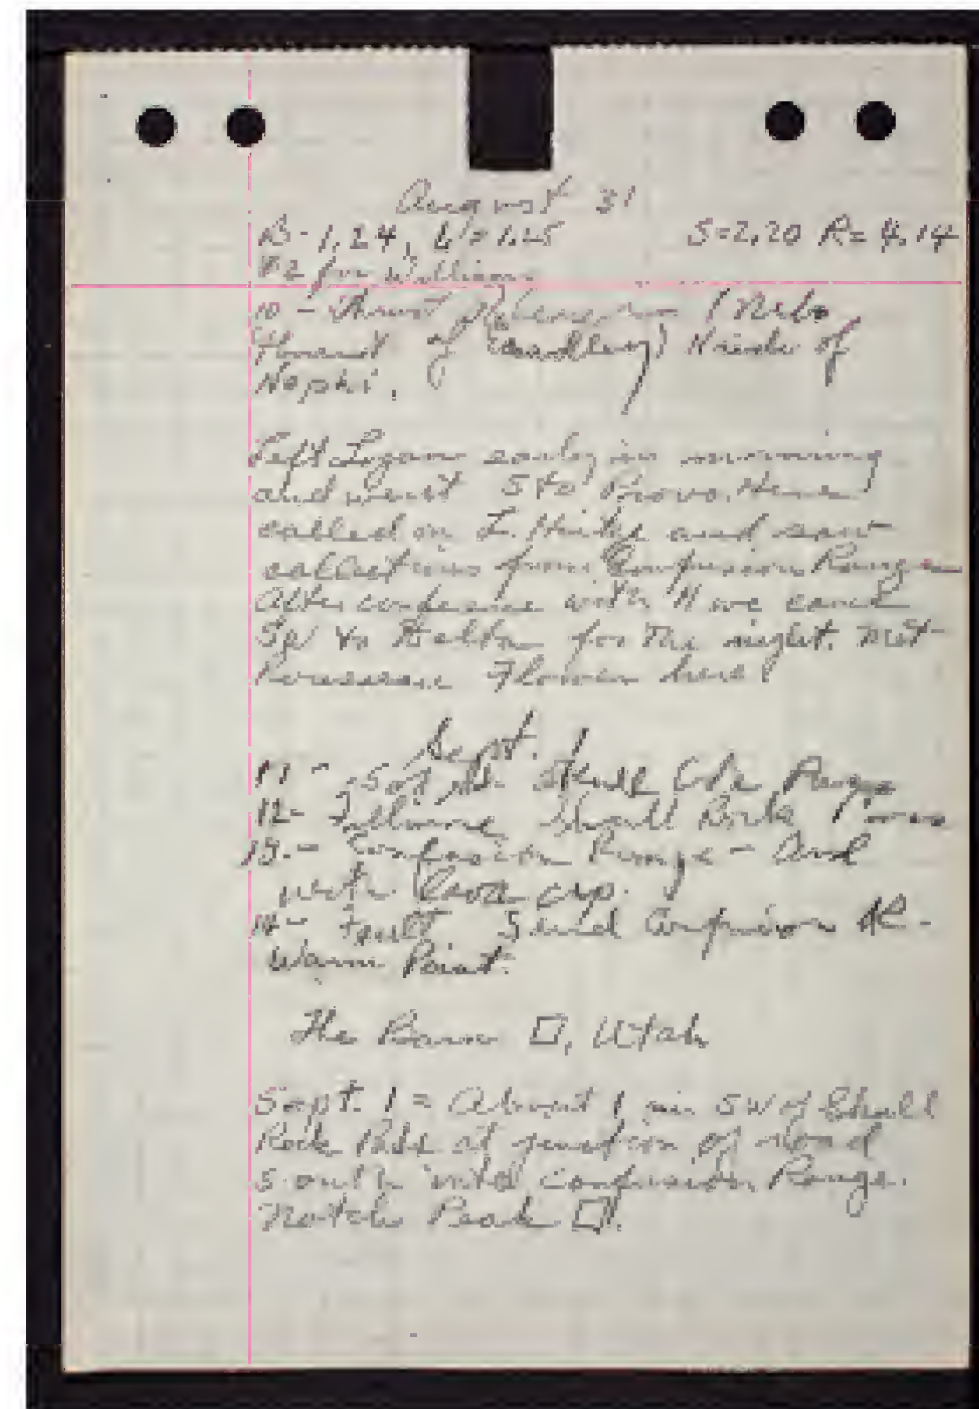 August 31
B-1.24, L=1.25 S=2.20 R=4.14
#2 for Williams
10 - Thrust (Nebo
Thrust of Eardley) N side of
Nephi.
Left Logan early in morning
and went S to Provo. Here
called on L. Hintze and saw
collections from Confusion Range
After conference with H we came
SW to Delta for the night. Met
Rousseau Flower here.
Sept. 1
11 -
12 - Skull Rock Pass
13. - Confusion Range - Ord
with lava cap.
14 - Fault S end Confusion R. -
Warm Point.
The Barn □, Utah
Sept. 1 = About 1 mi SW of Skull
Rock Pass at junction of road
south into Confusion Range.
Notch Peak □.